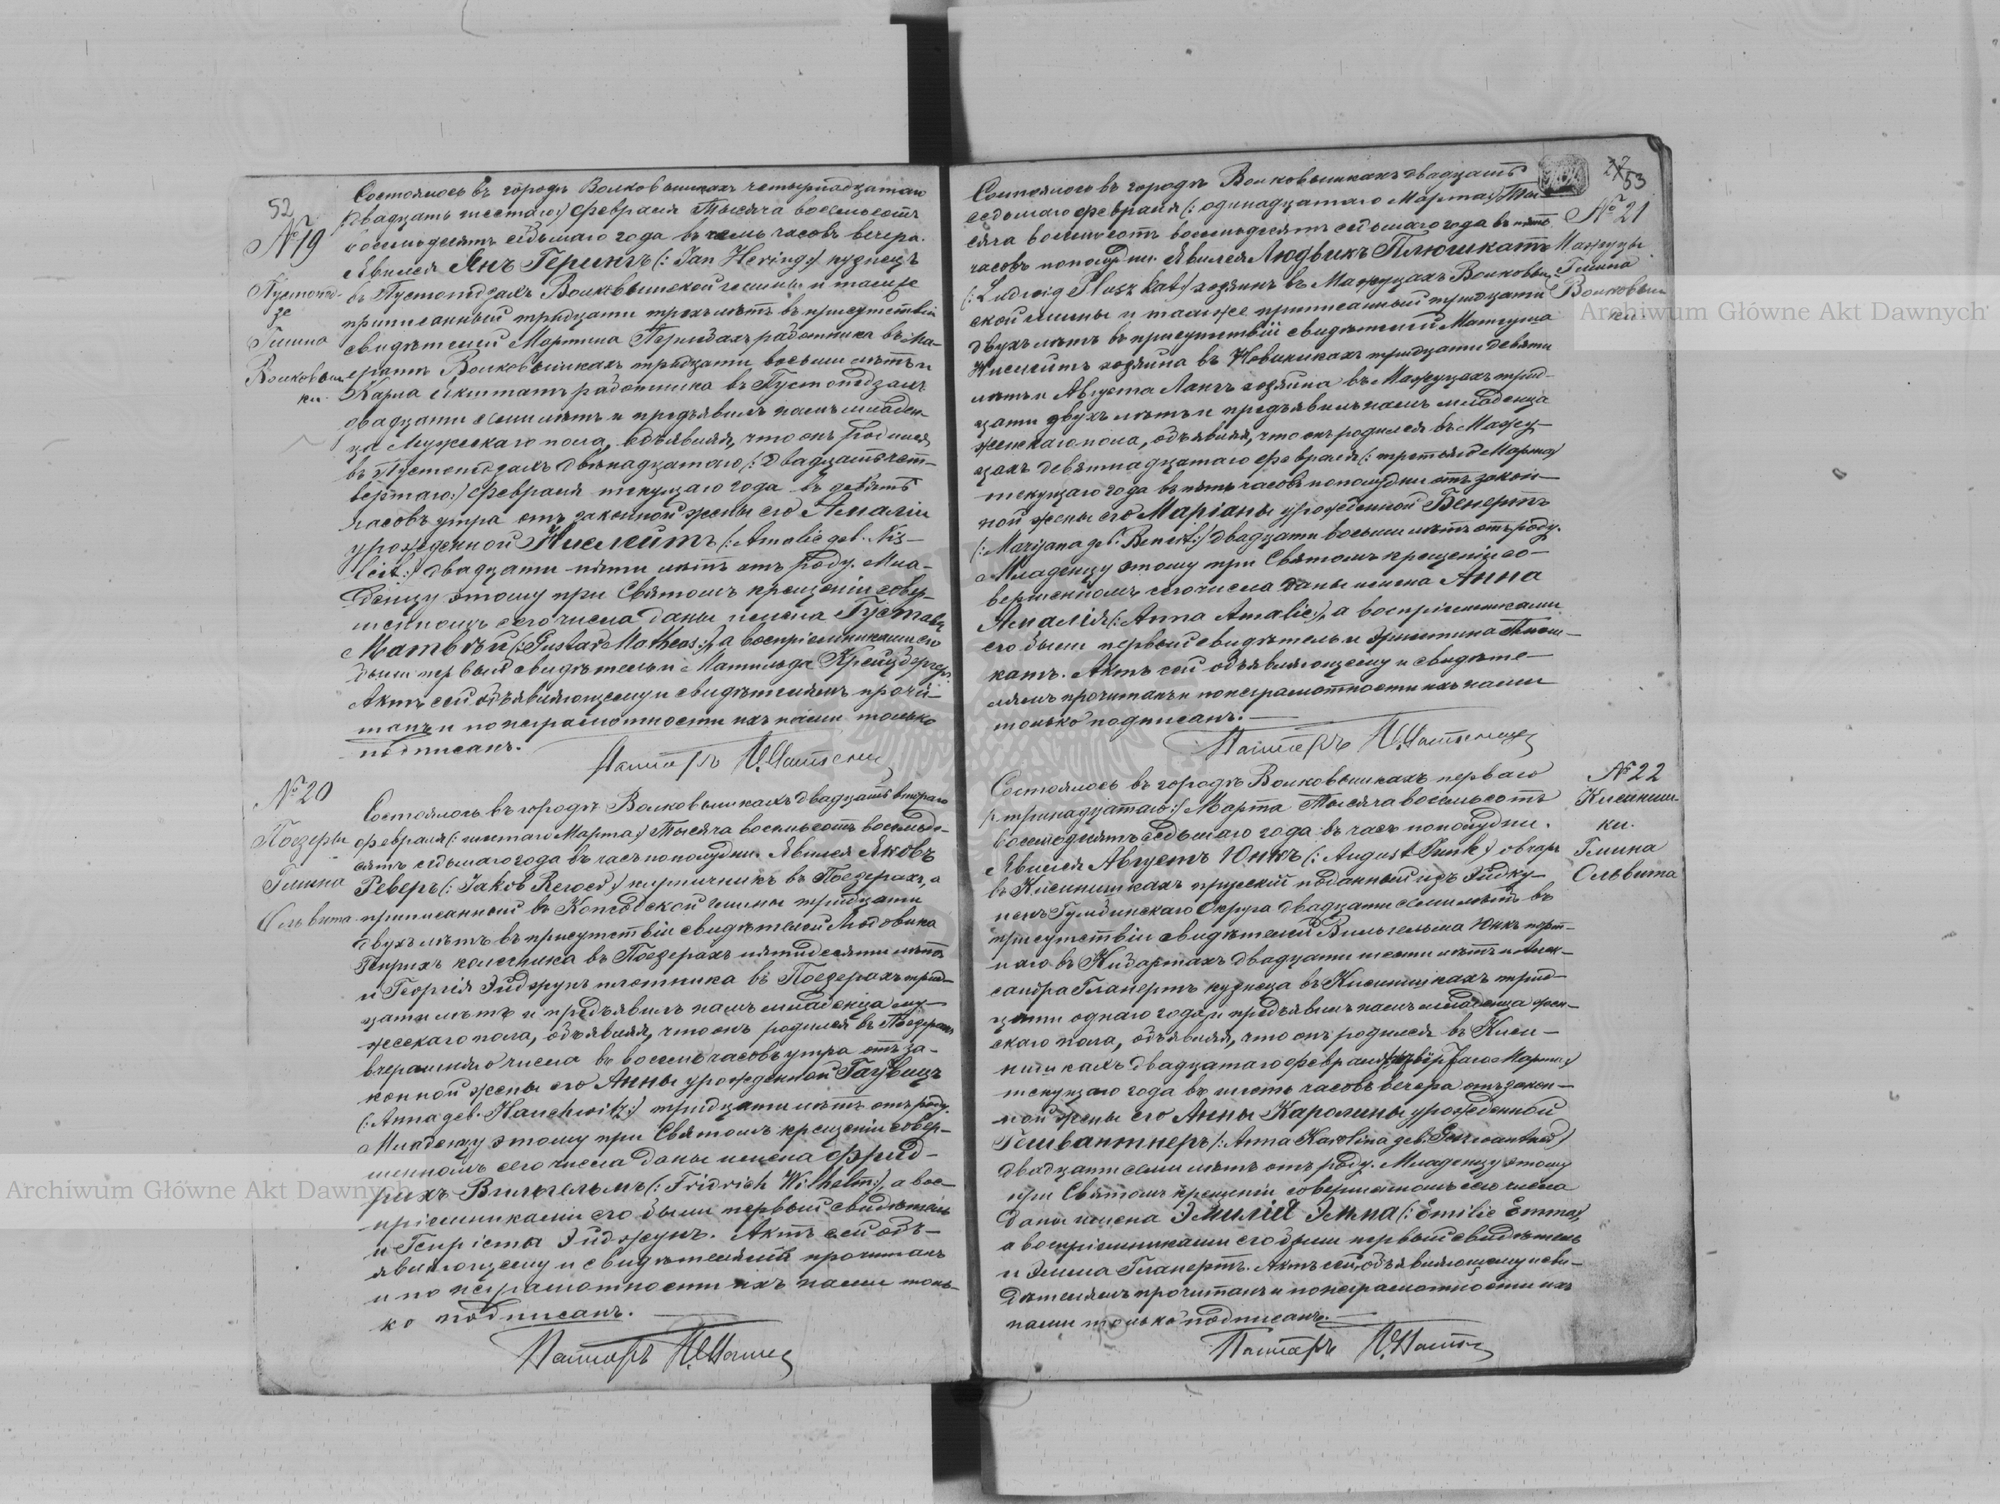 52
№ 19
Пустопед-
зе
Гмина
Волковыш
ки.
Состоялось въ городѣ Волковышкахъ четырнадцатаго
(двадцать шестаго:) Февраля Тысяча восемьсотъ
восемьдесятъ седьмаго года въ семь часовъ вечера.
Явился Янъ Герингъ (: Jan Hering:) кузнецъ
въ Пустопѣдзахъ Волковышской гмины и также
приписанный тридцати трехъ лѣтъ въ присутствіи
свидѣтелей Мартина работника въ Ма-
Волковышкахъ тридцати восьми лѣтъ и
Карла работника въ Пустопѣдзахъ
двадцати семи лѣтъ и предъявилъ намъ младен-
ца мужескаго пола, объявляя, что онъ родился
въ Пустопѣдзахъ двѣнадцатаго (: двадцать чет-
вертаго:) Февраля текущаго года въ девять
часовъ утра отъ законной жены его Амаліи
урожденной Нислейтъ (: Amalie geb. Nis-
leit:) двадцати пяти лѣтъ отъ роду. Мла-
денцу этому при Святомъ крещеніи совер-
шенномъ сего числа даны имена Густавъ
Матвѣй (: Gustav Matheas:), а воспріемниками его
были первый свидѣтель и Матильда Крейцбергеръ.
Актъ сей объявляющему и свидѣтелямъ прочи-
танъ и по неграмотности ихъ нами только
подписанъ.
Пасторъ
№ 20
Поезеры
Гмина
Ольвита
Состоялось въ городѣ Волковышкахъ двадцать втораго
Февраля (: шестаго Марта:) Тысяча восемьсотъ восемьде-
сятъ седьмаго года въ часъ пополудни. Явился Яковъ
Реверъ (: Jakob :) кирпичникъ въ Поезерахъ, а
приписанный въ Копсодской гмины тридцати
двухъ лѣтъ въ присутствіи свидѣтелей Людовика
Генрихъ колесника въ Поезерахъ пятидесяти лѣтъ
и Георгія Эйджунъ плотника въ Поезерахъ трид-
цати лѣтъ и предъявилъ намъ младенца му-
жескаго пола, объявляя, что онъ родился въ Поезерахъ
вчерашняго числа въ восемь часовъ утра отъ за-
конной жены его Анны урожденной Гаувицъ
(: Anna geb. Hauchwitz:) тридцати лѣтъ отъ роду.
Младенцу этому при Святомъ крещеніи совер-
шенномъ сего числа даны имена Фрид-
рихъ Вильгельмъ (: Fridrich Wilhelm:), а вос-
пріемниками его были первый свидѣтель
и Генріета Эйджунъ. Актъ сей объ-
являющему и свидѣтелямъ прочитанъ
и по неграмотности ихъ нами толь-
ко подписанъ.
Пасторъ
53
№ 21
Мажуцы
Гмина
Волковыш
ки.
Состоялось въ городѣ Волковышкахъ двадцать
седьмаго Февраля (: одинадцатаго Марта:) Ты-
сяча восемьсотъ восемьдесятъ седьмаго года въ пять
часовъ пополудни. Явился Людвикъ Плюшкатъ
(: Ludwig Pluszkat:) хозяинъ въ Мажуцахъ Волковыш-
ской гмины и также приписанный тридцати
двухъ лѣтъ въ присутствіи свидѣтелей
хозяина въ Новиникахъ тридцати девяти
лѣтъ и Августа Лангъ хозяина въ Мажуцахъ трид-
цати двухъ лѣтъ и предъявилъ намъ младенца
женскаго пола, объявляя, что онъ родился въ Мажу-
цахъ девятнадцатаго Февраля (: третьяго Марта:)
текущаго года въ пять часовъ пополудни отъ закон-
ной жены его Маріаны урожденной Бенертъ
(: Maryana geb. Benert:) двадцати восьми лѣтъ отъ роду.
Младенцу этому при Святомъ крещеніи со-
вершенномъ сего числа даны имена Анна
Амалія (: Anna Amalie:), а воспріемниками
его были первый свидѣтель и Эрнстина Плюш-
катъ. Актъ сей объявляющему и свидѣте-
лямъ прочитанъ и по неграмотности ихъ нами
только подписанъ.
Пасторъ
№ 22
Кисиниш
ки.
Гмина
Ольвита
Состоялось въ городѣ Волковышкахъ перваго
(: тринадцатаго:) Марта Тысяча восемьсотъ
восемьдесятъ седьмаго года въ часъ пополудни.
Явился Августъ Юнкъ (: August Junk:) овчаръ
въ Кисинишкахъ прусскій подданный изъ Эйдку-
ненъ Гумбинскаго Округа двадцати семи лѣтъ въ
присутствіи свидѣтелей Вильгельма Юнкъ порт-
наго въ Кибартахъ двадцати шести лѣтъ и Алек-
сандра Гланертъ кузнеца въ Кисинишкахъ трид-
цати одного года и предъявилъ намъ младенца жен-
скаго пола, объявляя, что онъ родился въ Киси-
нишкахъ двадцатаго Февраля Марта:)
текущаго года въ шесть часовъ вечера отъ закон-
ной жены его Анны Каролины урожденной
Гешвантнеръ (: Anna Karolina geb. :)
двадцати семи лѣтъ отъ роду. Младенцу этому
при Святомъ крещеніи совершенномъ сего числа
даны имена Эмилія Эмма (: Emilie Emma:),
а воспріемниками его были первый свидѣтель
и Эмма Гланертъ. Актъ сей объявляющему и сви-
дѣтелямъ прочитанъ и по неграмотности ихъ
нами только подписанъ.
Пасторъ
Archiwum Główne Akt Dawnych
Archiwum Główne Akt Dawnych